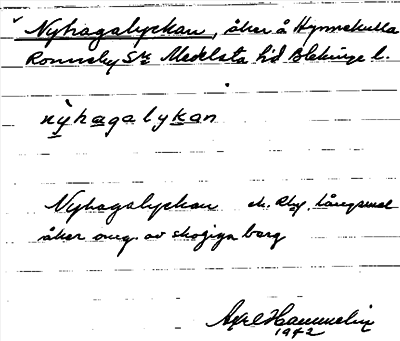 Nyhagalyckan, åker å Hynnekulla
Ronneby Sn Medelsta hd Blekinge l.
nỳhagalykan
Nyhagalyckan långsmal
åker omg. av skogiga berg
Axel Hammelin
1942